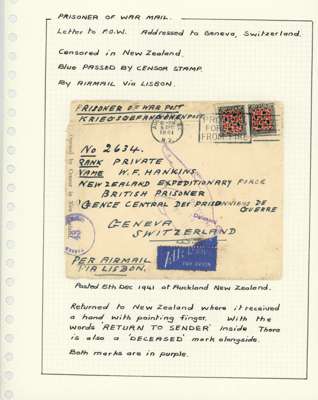 PRISONER OF WAR MAIL.
Letter to P.O.W. Addressed to Geneva, Switzerland.
Censored in New Zealand.
Blue PASSED BY CENSOR STAMP.
By AIRMAIL via LISBON.
PRISONER OF WAR POST
KRIEGSGEFANGENENPOST
1941
No 2634.
RANK PRIVATE
NAME W. F. HANKINS.
NEW ZEALAND EXPEDITIONARY FORCE
BRITISH PRISONER
AGENCE CENTRAL DES PRISONNIERS DE
GUERRE
GENEVA
SWITZERLAND
PER AIRMAIL
VIA LISBON.
AIR MAIL
Posted 8th Dec 1941 at Auckland New Zealand.
Returned to New Zealand where it received
a hand with pointing finger. With the
words 'RETURN TO SENDER' inside There
is also a 'DECEASED' mark alongside.
Both marks are in purple.